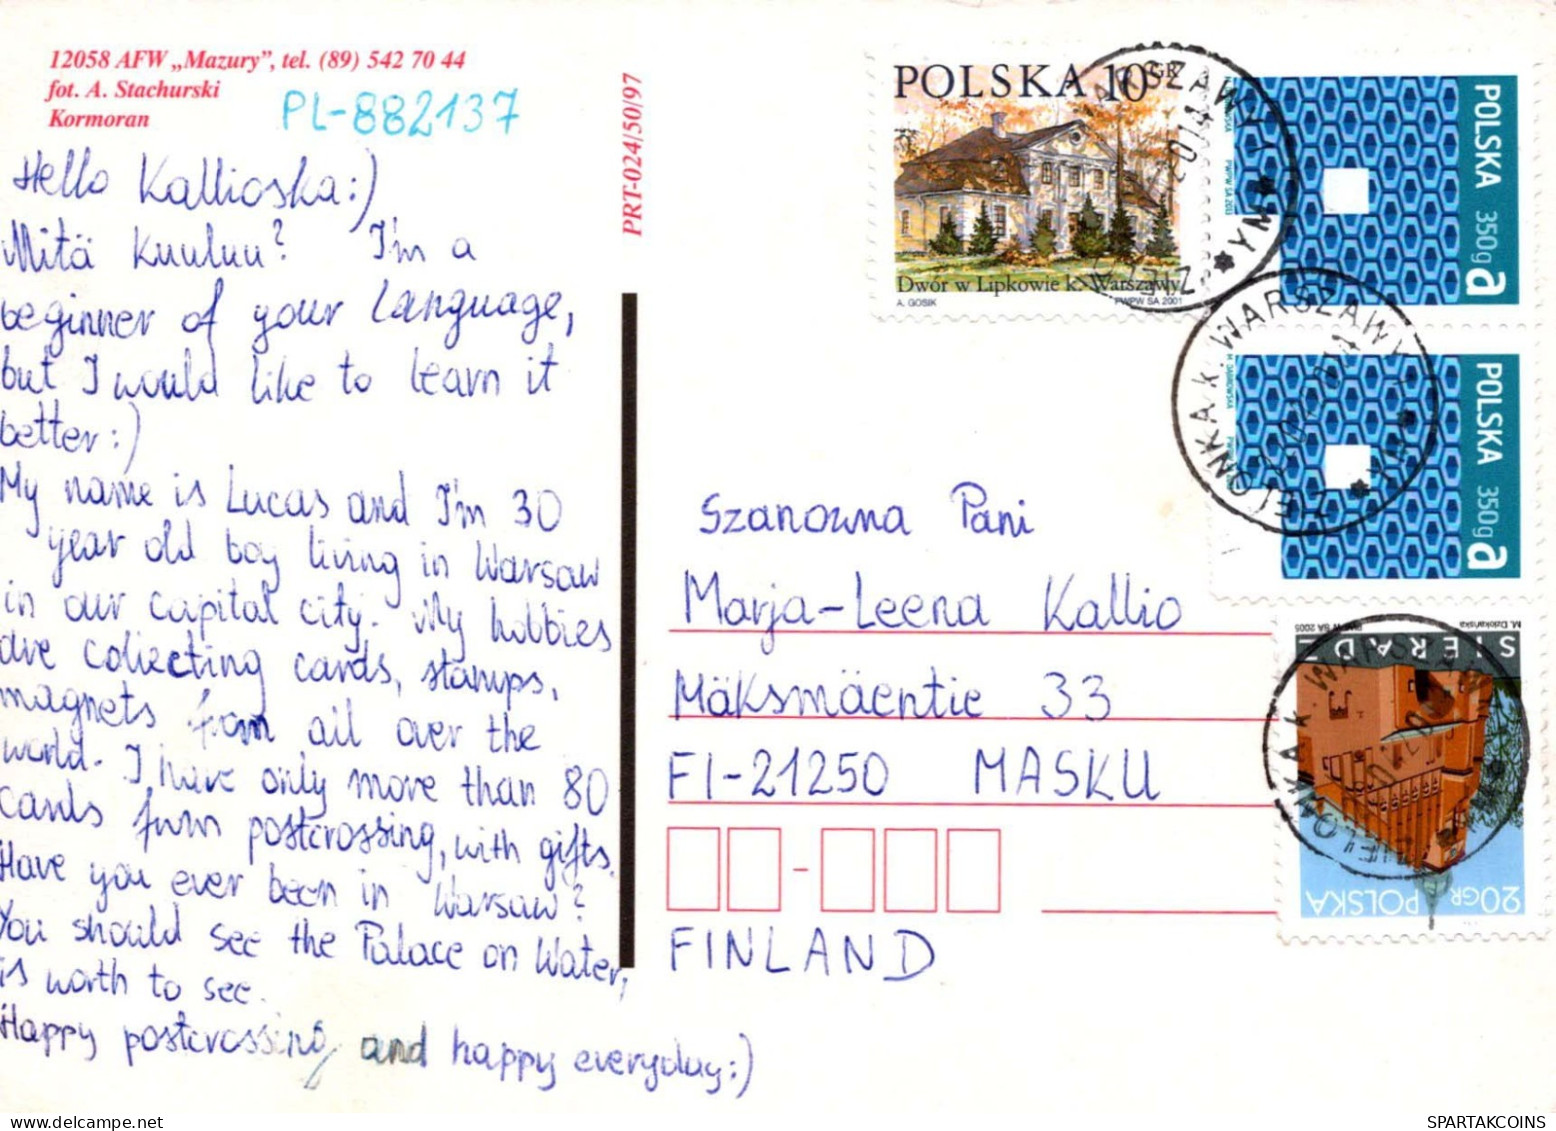 12058 AFW „Mazury”, tel. (89) 542 70 44
fot. A. Stachurski
Kormoran
PL-882137
PRT-024/50/97
Hello Kallioska:)
Mitä Kuuluu? I'm a
beginner of your language,
but I would like to learn it
better:)
My name is Lucas and I'm 30
year old boy living in Warsaw
in our capital city. My hobbies
are collecting cards, stamps,
magnets from all over the
world. I have only more than 80
cards from postcrossing, with gifts.
Have you ever been in Warsaw?
You should see the Palace on Water,
is worth to see.
Happy postcrossing and happy everyday:)
POLSKA 10GR
Dwór w Lipkowie k. Warszawy
A. GOSIK PWPW SA 2001
POLSKA 350g a
POLSKA 350g a
ZIELONKA k. WARSZAWY
SIERADZ
M. Dziekańska PWPW SA 2005
POLSKA 20GR
Szanowna Pani
Marja-Leena Kallio
Mäksmäentie 33
FI-21250 MASKU
FINLAND
SPARTAKCOINS.COM